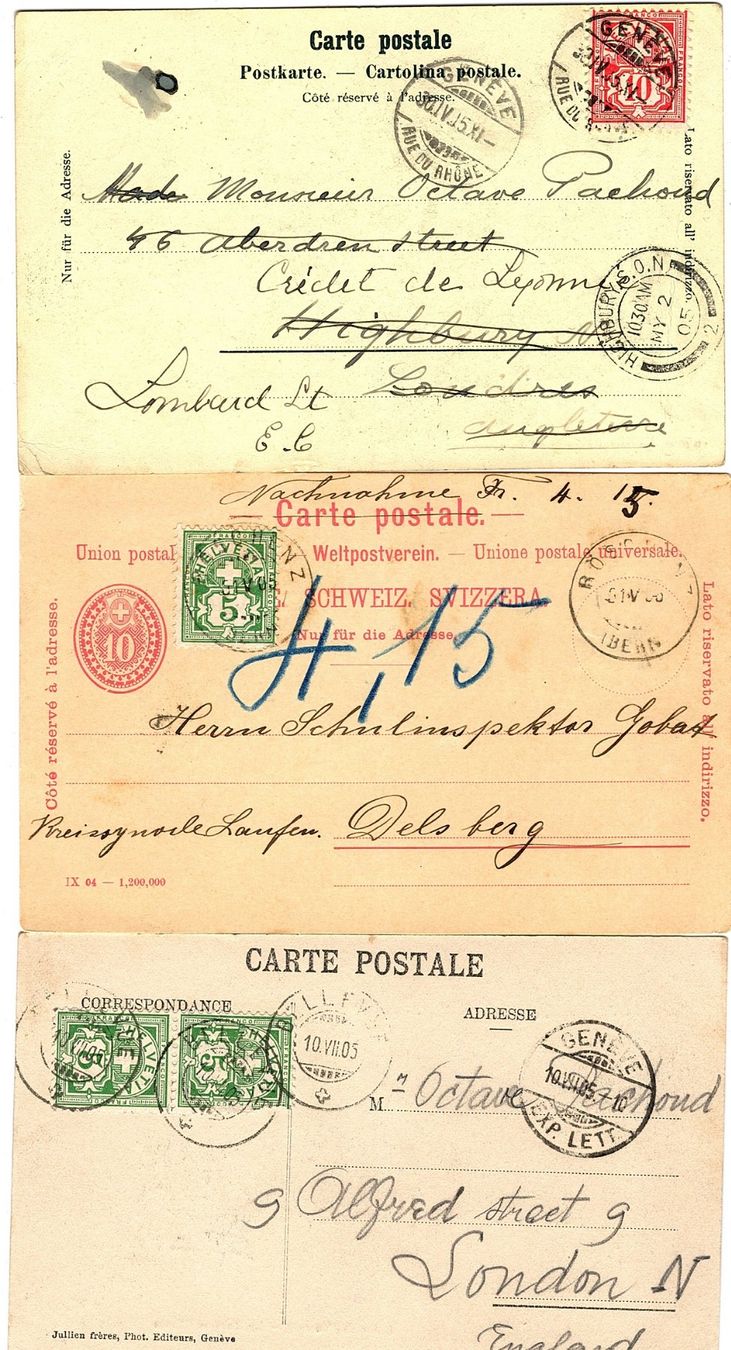 Carte postale
Postkarte. — Cartolina postale.
Côté réservé à l'adresse.
Nur für die Adresse.
Lato riservato all' indirizzo.
GENÈVE
RUE DU RHÔNE
GENÈVE
10
Monsieur Octave Pachoud
46 Aberdren Street
Crédit de Lyonnais
Highbury N
Londres
Angleterre
Lombard St
E.C
HIGHBURY S.O.N
10.30AM
MY 2
05
2
Nachnahme Fr. 4. 15.
Carte postale.
Union postale Weltpostverein. — Unione postale universale.
SCHWEIZ. SVIZZERA
Nur für die Adresse
Côté réservé à l'adresse.
Lato riservato all' indirizzo.
10
HELVETIA
5
(BERN)
4,15
Herrn Schulinspektor Gobat
Kreissynode Laufen. Delsberg
IX 04 — 1,200,000
CARTE POSTALE
CORRESPONDANCE
ADRESSE
HELVETIA
5
HELVETIA
5
BELLEVUE
10.VII.05
GENÈVE
10.VII.05.-10
EXP. LETT.
M. Octave Pachoud
9 Alfred street 9
London N
England
Jullien frères, Phot. Editeurs, Genève